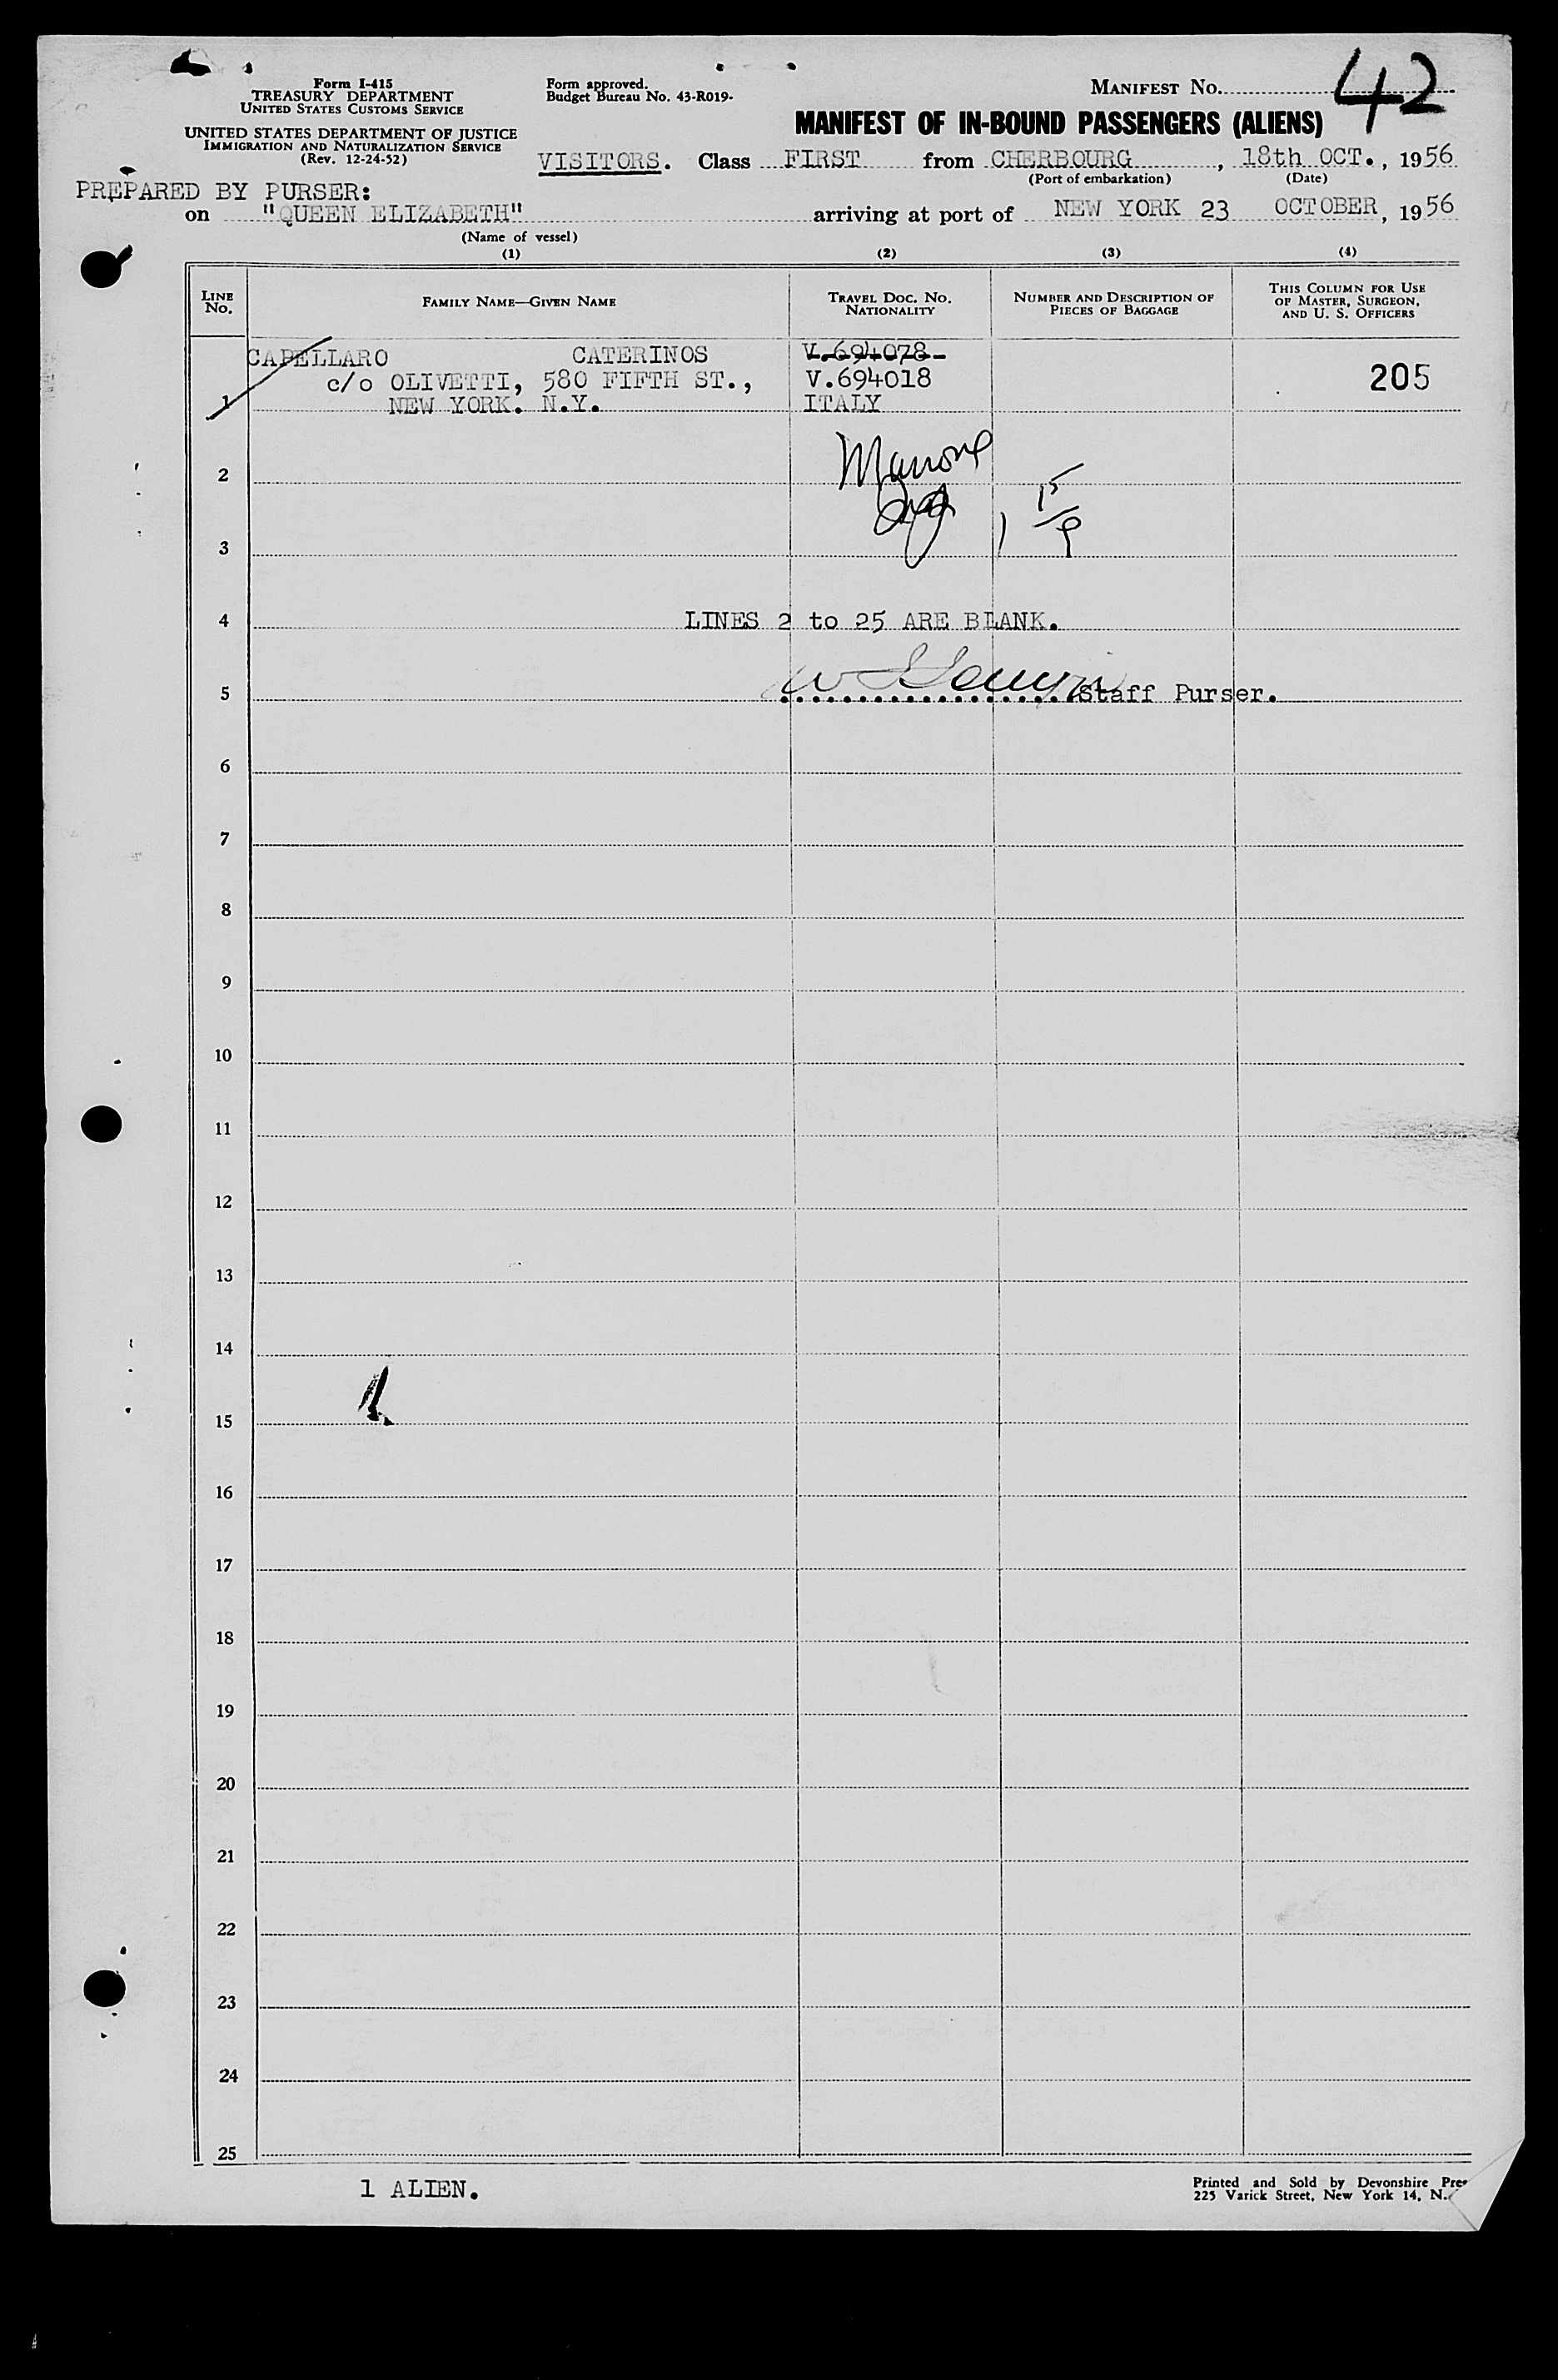 Form I-415
TREASURY DEPARTMENT
UNITED STATES CUSTOMS SERVICE
UNITED STATES DEPARTMENT OF JUSTICE
IMMIGRATION AND NATURALIZATION SERVICE
(Rev. 12-24-52)
Form approved.
Budget Bureau No. 43-R019-
MANIFEST NO. 42
MANIFEST OF IN-BOUND PASSENGERS (ALIENS)
VISITORS. Class FIRST from CHERBOURG, 18th OCT., 1956
(Port of embarkation) (Date)
PREPARED BY PURSER:
on "QUEEN ELIZABETH" arriving at port of NEW YORK 23 OCTOBER, 1956
(Name of vessel)
(1) (2) (3) (4)
LINE NO.
FAMILY NAME—GIVEN NAME
TRAVEL DOC. NO.
NATIONALITY
NUMBER AND DESCRIPTION OF
PIECES OF BAGGAGE
THIS COLUMN FOR USE
OF MASTER, SURGEON,
AND U. S. OFFICERS
CAPELLARO CATERINOS V.694078
c/o OLIVETTI, 580 FIFTH ST., V.694018 205
1 NEW YORK. N.Y. ITALY
2
3
4 LINES 2 to 25 ARE BLANK.
5 Staff Purser.
6
7
8
9
10
11
12
13
14
15
16
17
18
19
20
21
22
23
24
25
1 ALIEN.
Printed and Sold by Devonshire
225 Varick Street, New York 14, N.